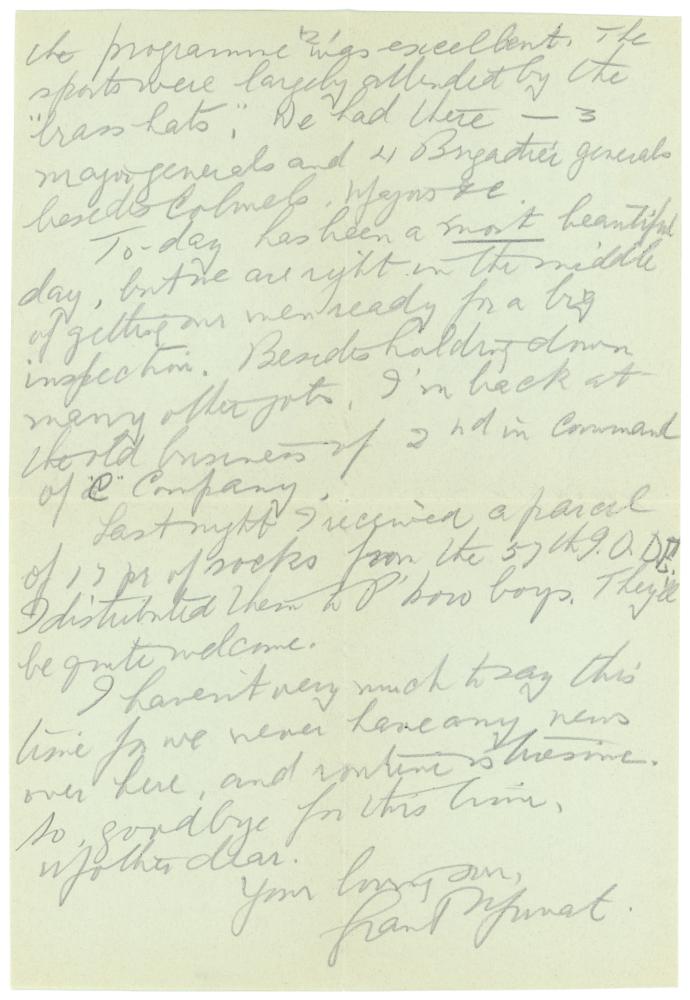 the programme was excellent. The
sports were largely attended by the
"brass hats". We had there — 3
major generals and 4 Brigadier generals
besides Colonels, Majors &c
To-day has been a most beautiful
day, but we are right in the middle
of getting our men ready for a big
inspection. Besides holding down
many other jobs, I'm back at
the old business of 2nd in Command
of "C" Company.
Last night I received a parcel
of 17 pr of socks from the 57th I.O.D.E.
I distributed them to P'boro boys. They'll
be quite welcome.
I haven't very much to say this
time for we never have any news
over here, and routine is tiresome.
So, goodbye for this time,
Mother dear.
Your loving son,
Grant